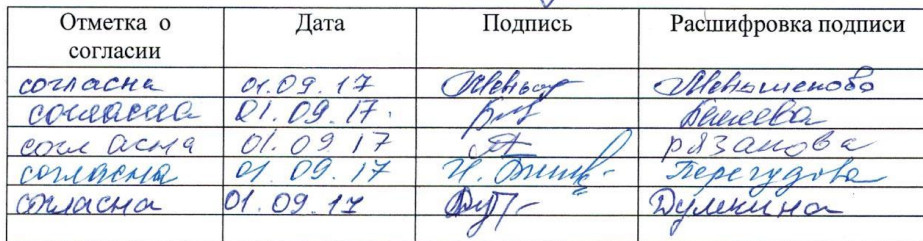 Отметка о согласии Дата Подпись Расшифровка подписи
согласна 01.09.17 Меньш Меньшенова
согласна 01.09.17.
согласна 01.09.17 Рязанова
согласна 01.09.17 Перегудова
согласна 01.09.17 Дулкина